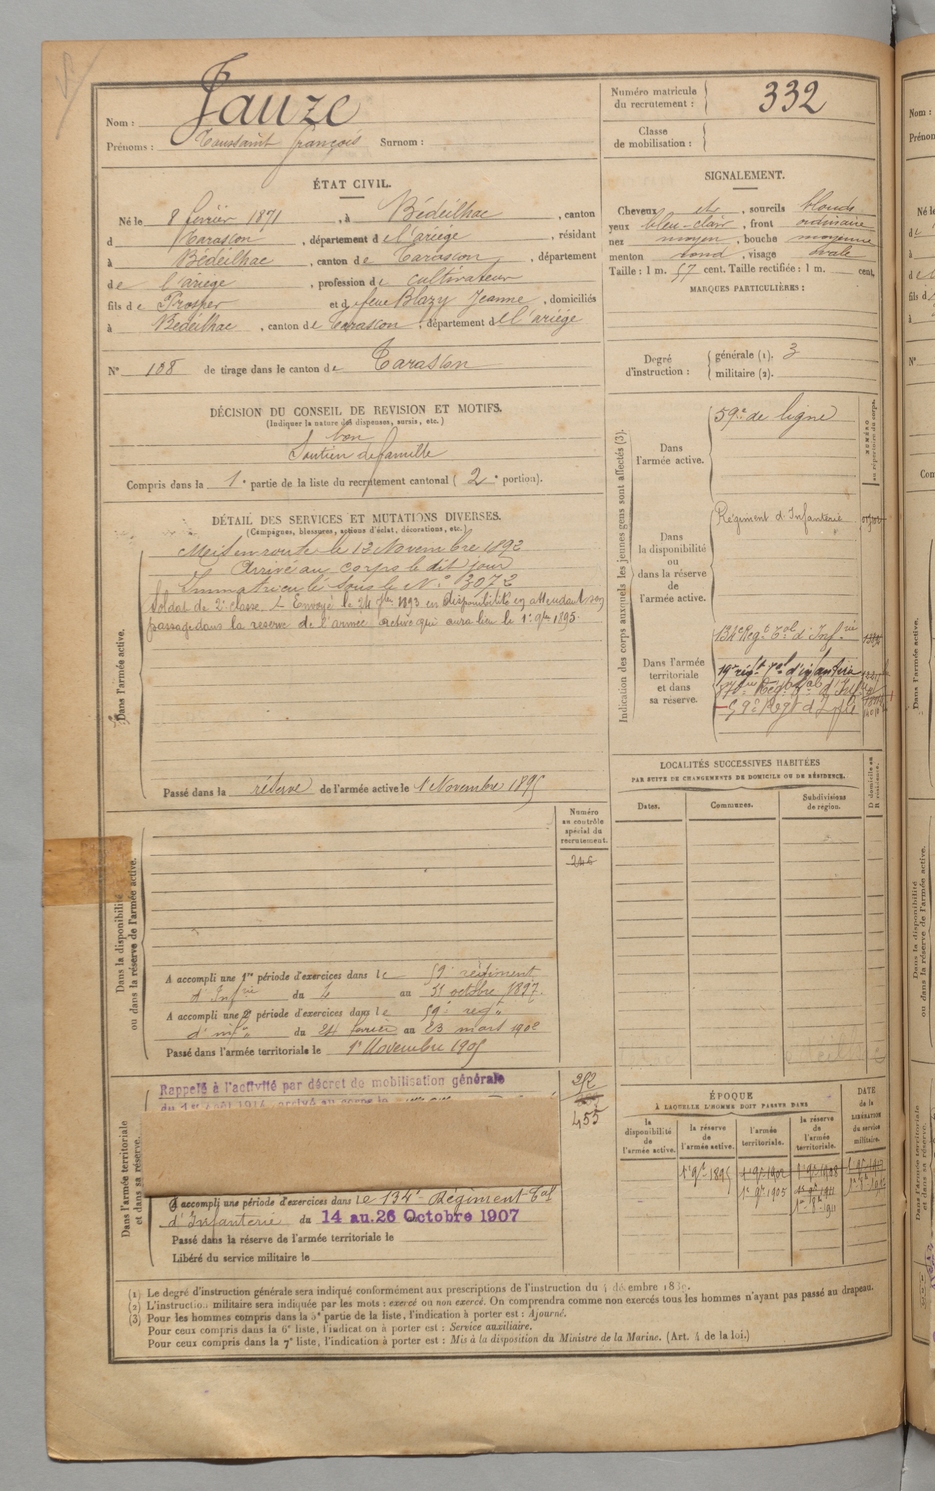 Nom : Jauze
Prénoms : Toussaint François Surnom :
Numéro matricule du recrutement : 332
Classe de mobilisation :
ÉTAT CIVIL.
Né le 8 février 1871, à Bédeilhac, canton
d Tarascon, département de l'ariège, résidant
à Bédeilhac, canton de Tarascon, département
de l'ariège, profession de cultivateur
fils de Prosper et d feue Blazy Jeanne, domiciliés
à Bédeilhac, canton de Tarascon, département de l'ariège
N° 108 de tirage dans le canton de Tarascon
SIGNALEMENT.
Cheveux et, sourcils blonds
yeux bleu-clair, front ordinaire
nez moyen, bouche moyenne
menton rond, visage ovale
Taille : 1 m. 57 cent. Taille rectifiée : 1 m. cent.
MARQUES PARTICULIÈRES :
Degré d'instruction : générale (1). 3
militaire (2).
DÉCISION DU CONSEIL DE REVISION ET MOTIFS.
(Indiquer la nature des dispenses, sursis, etc.)
bon
Soutien de famille
Compris dans la 1e partie de la liste du recrutement cantonal (2e portion).
DÉTAIL DES SERVICES ET MUTATIONS DIVERSES.
(Campagnes, blessures, actions d'éclat, décorations, etc.)
Dans l'armée active.
Mis en route le 12 Novembre 1892
Arrivé au corps le dit jour
Immatriculé sous le N° 3072
Soldat de 2e classe. Envoyé le 24 7bre 1893 en disponibilité en attendant son
passage dans la réserve de l'armée active qui aura lieu le 1er 9bre 1895
Passé dans la réserve de l'armée active le 1 Novembre 1895
Indication des corps auxquels les jeunes gens sont affectés (3).
Dans l'armée active. 59e de ligne
Dans la disponibilité ou dans la réserve de l'armée active. Régiment d'Infanterie
Dans l'armée territoriale et dans sa réserve.
134e Regt Tal d'Infrie
59e Regt d'Infie
LOCALITÉS SUCCESSIVES HABITÉES
PAR SUITE DE CHANGEMENTS DE DOMICILE OU DE RÉSIDENCE.
Dates. Communes. Subdivisions de région.
Numéro au contrôle spécial du recrutement.
246
Dans la disponibilité ou dans la réserve de l'armée active.
A accompli une 1re période d'exercices dans le 59e régiment
d'Infrie du 4 au 31 octobre 1897.
A accompli une 2e période d'exercices dans le 59e regt
d'infie du 24 février au 23 mars 1902
Passé dans l'armée territoriale le 1er Novembre 1905
Dans l'armée territoriale et dans sa réserve.
Rappelé à l'activité par décret de mobilisation générale
du 1er Août 1914, arrivé au corps le
455
A accompli une période d'exercices dans le 134e Régiment Tal
d'Infanterie du 14 au 26 Octobre 1907
Passé dans la réserve de l'armée territoriale le
Libéré du service militaire le
ÉPOQUE
À LAQUELLE L'HOMME DOIT PASSER DANS
la disponibilité de l'armée active.
la réserve de l'armée active.
l'armée territoriale.
la réserve de l'armée territoriale.
DATE de la LIBÉRATION du service militaire.
1er 9bre 1895
1er 9bre 1905
(1) Le degré d'instruction générale sera indiqué conformément aux prescriptions de l'instruction du 4 décembre
(2) L'instruction militaire sera indiquée par les mots : exercé ou non exercé. On comprendra comme non exercés tous les hommes n'ayant pas passé au drapeau.
(3) Pour les hommes compris dans la 5e partie de la liste, l'indication à porter est : Ajourné.
Pour ceux compris dans la 6e liste, l'indication à porter est : Service auxiliaire.
Pour ceux compris dans la 7e liste, l'indication à porter est : Mis à la disposition du Ministre de la Marine. (Art. 4 de la loi.)